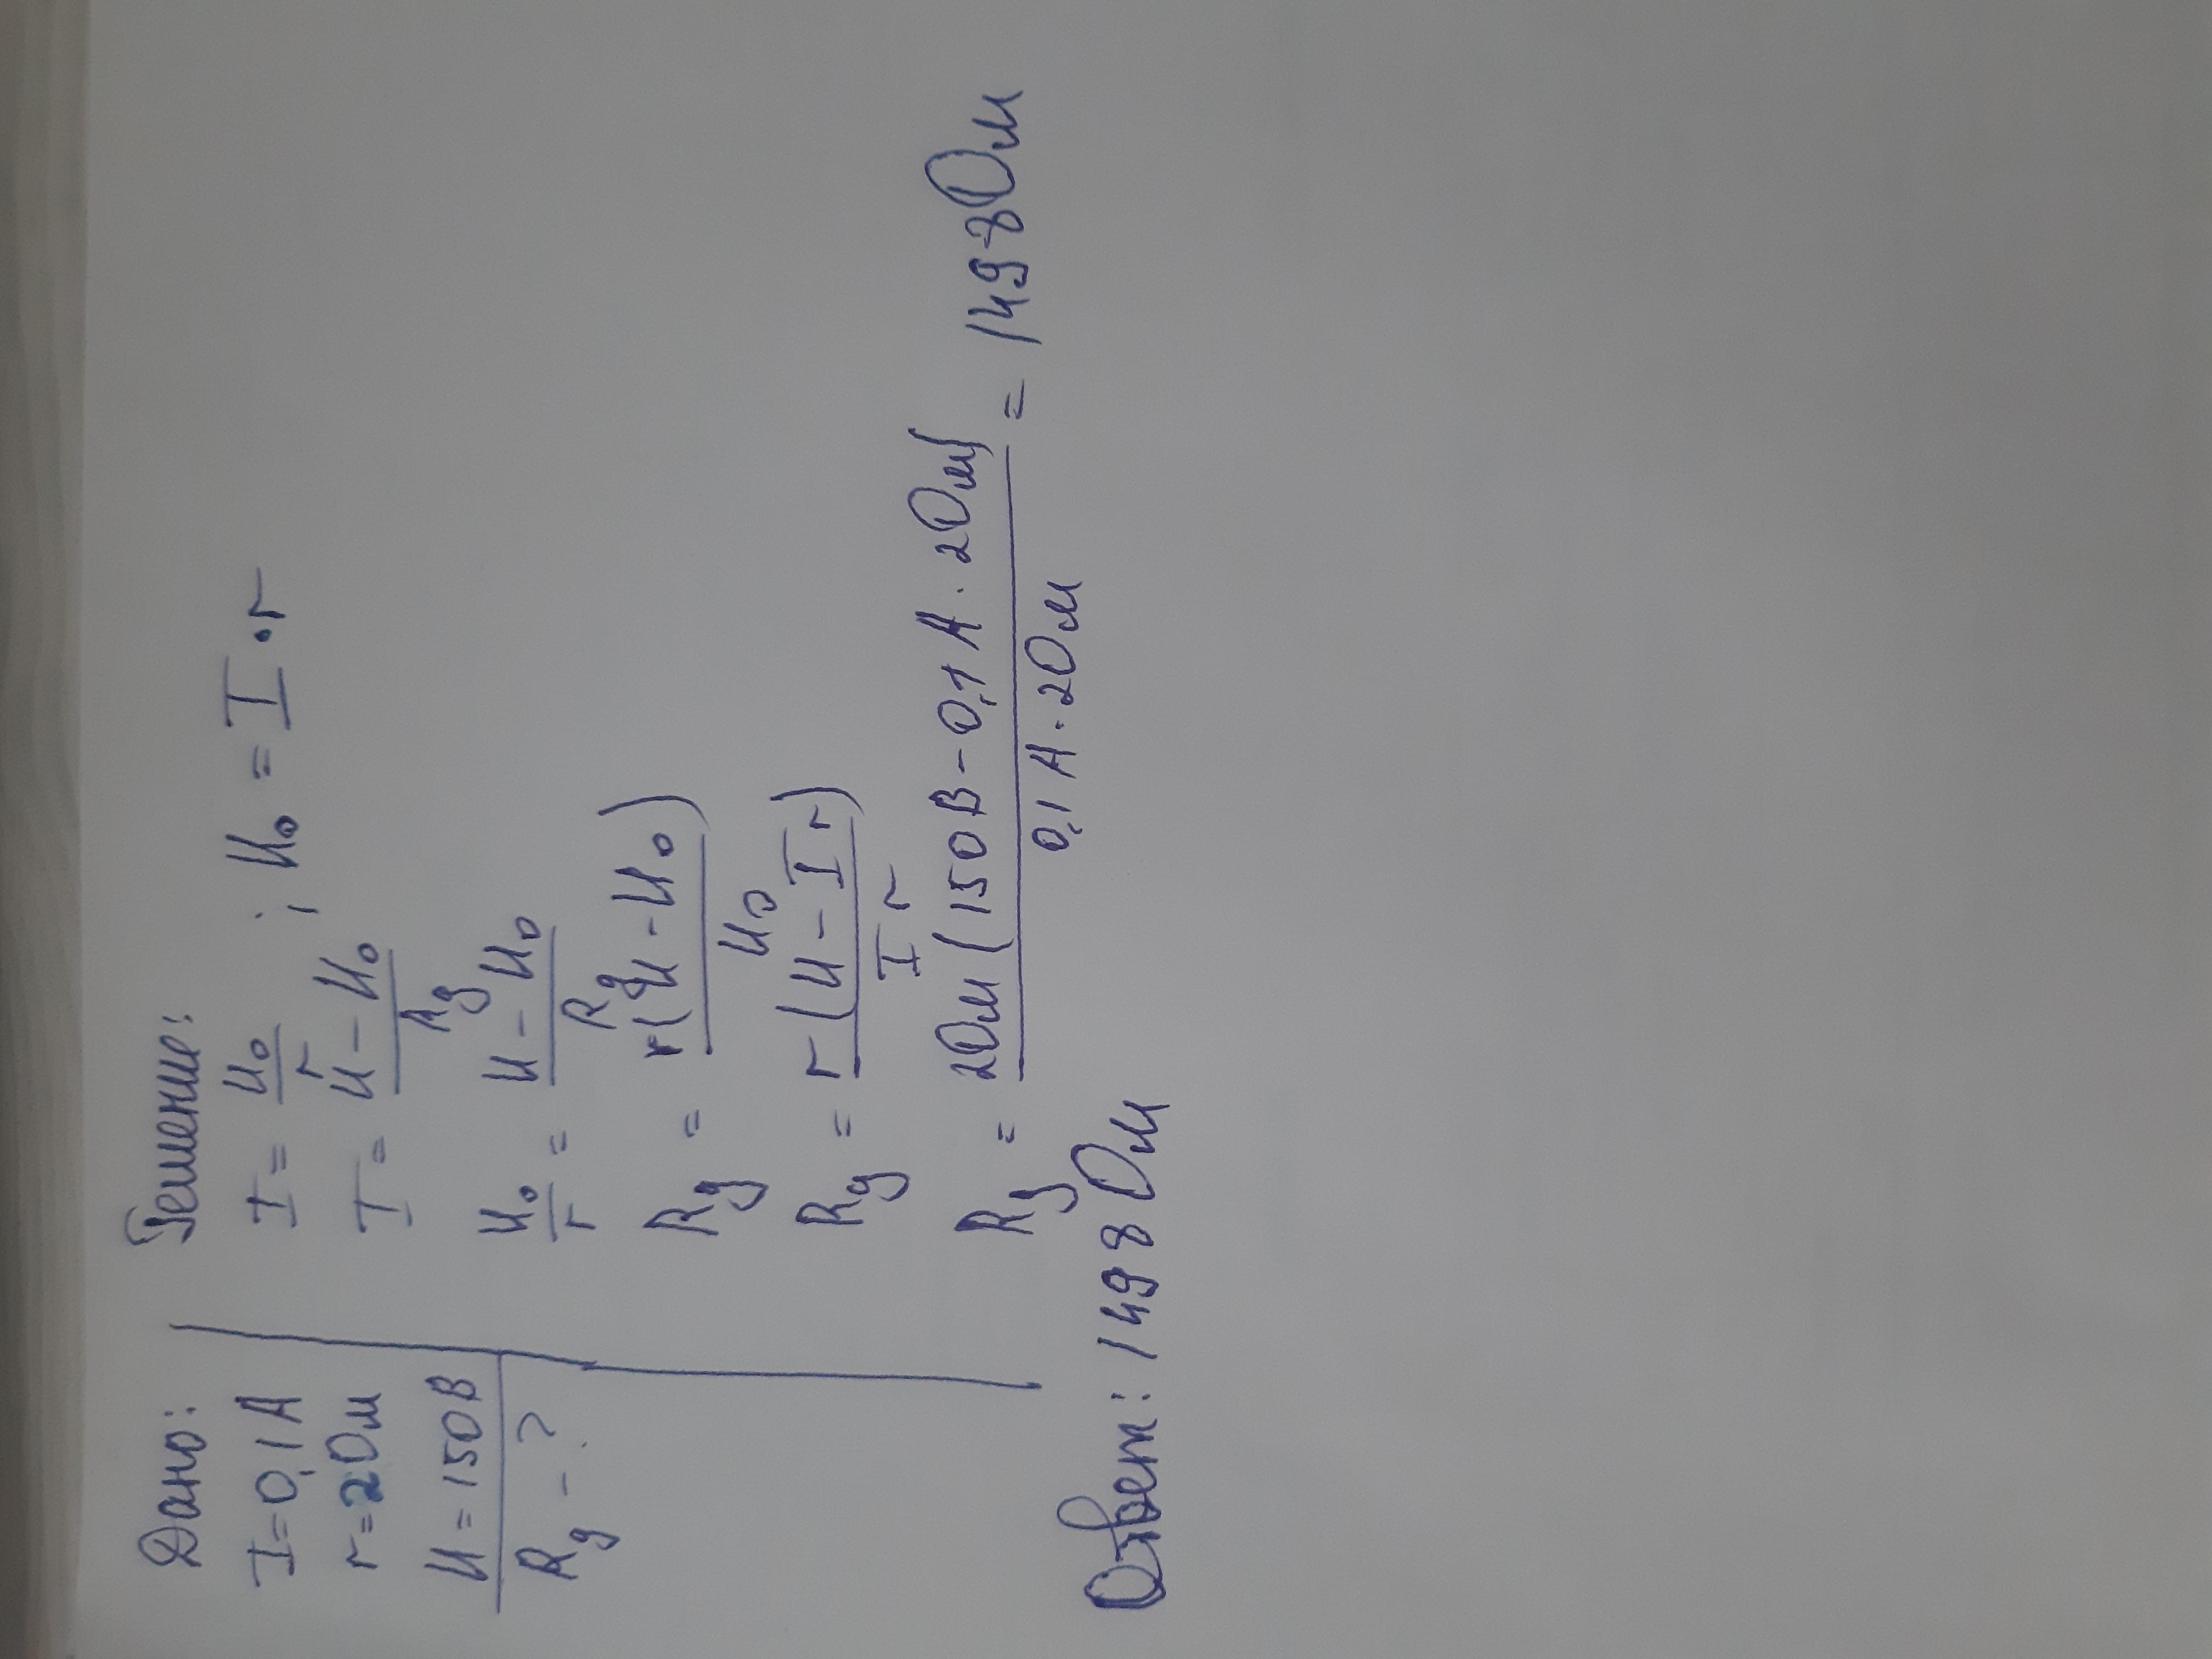 Дано:
I=0,1A
r=2Ом
U=150В
Rg-?
Решение:
I = U₀/r ; U₀ = I·r
I = U-U₀/Rg
U₀/r = U-U₀/Rg
Rg = r(U-U₀)/U₀
Rg = r(U-Ir)/Ir
Rg = 2Ом(150В-0,1А·2Ом)/0,1А·2Ом = 1498Ом
Ответ: 1498Ом